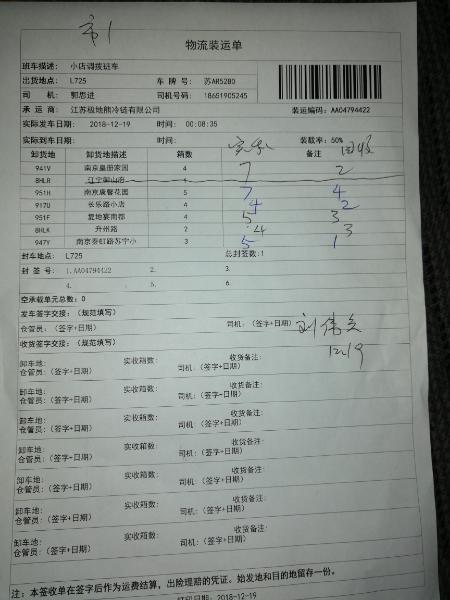 市1
物流装运单
班车描述: 小店调拨班车
出货地点: L725 车 牌 号: 苏AR5280
司 机: 郭思进 司机号码: 18651905245
承 运 商: 江苏极地熊冷链有限公司 装运编码: AA04794422
实际发车日期: 2018-12-19 时间: 00:08:35
实际到车日期: 时间: 装载率: 50%
卸货地 卸货地描述 箱数 实发 备注 回收
941V 南京皇册家园 4 7 2
8HLR 江宁御山府 4
951H 南京康馨花园 5 7 4
917U 长乐路小店 4 4 2
951F 爱地宴南都 4 5 3
8HLK 升州路 2 4 3
947Y 南京秦虹路苏宁小 3 5 1
封车地点: L725 总封签数:1
封 签 号: 1.AA04794422 2. 3.
4. 5. 6.
空承载单元总数: 0
发车签字交接: (规范填写)
仓管员: (签字+日期) 司机: (签字+日期) 刘伟
12.19
收货签字交接: (规范填写)
卸车地: 实收箱数: 收货备注:
仓管员: (签字+日期) 司机: (签字+日期)
卸车地: 实收箱数: 收货备注:
仓管员: (签字+日期) 司机: (签字+日期)
卸车地: 实收箱数: 收货备注:
仓管员: (签字+日期) 司机: (签字+日期)
卸车地: 实收箱数: 收货备注:
仓管员: (签字+日期) 司机: (签字+日期)
卸车地: 实收箱数: 收货备注:
仓管员: (签字+日期) 司机: (签字+日期)
卸车地: 实收箱数: 收货备注:
仓管员: (签字+日期) 司机: (签字+日期)
卸车地: 实收箱数: 收货备注:
仓管员: (签字+日期) 司机: (签字+日期)
注: 本签收单在签字后作为运费结算, 出险理赔的凭证。始发地和目的地留存一份。
打印日期: 2018-12-19